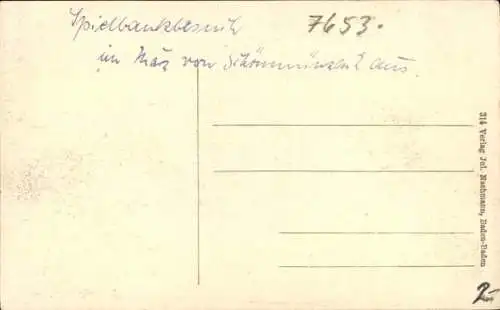 Spielbankbesuch 7653.
im März von Schönmünzach aus.
314 Verlag Jul. Nachmann, Baden-Baden
2,-